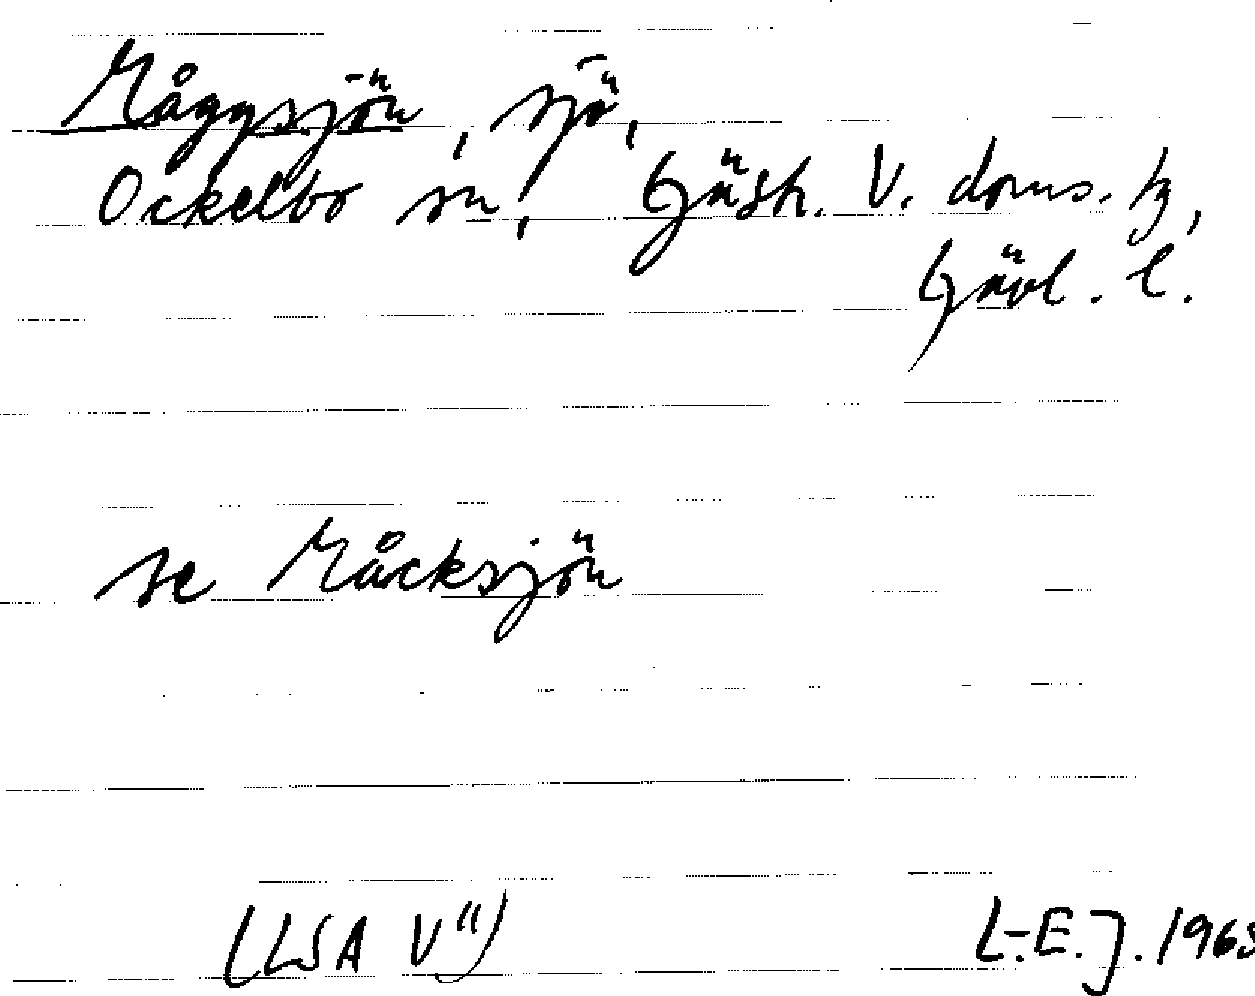 Måggsjön, sjö,
Ockelbo sn, Gästr. V. doms. tg,
Gävl. l.
se Måcksjön
(LSA V") L-E.J. 1965